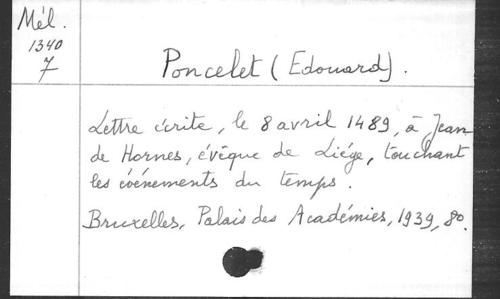 Mél.
1340
7
Poncelet (Edouard).
Lettre écrite, le 8 avril 1489, à Jean
de Hornes, évêque de Liége, touchant
les événements du temps.
Bruxelles, Palais des Académies, 1939, 8o.